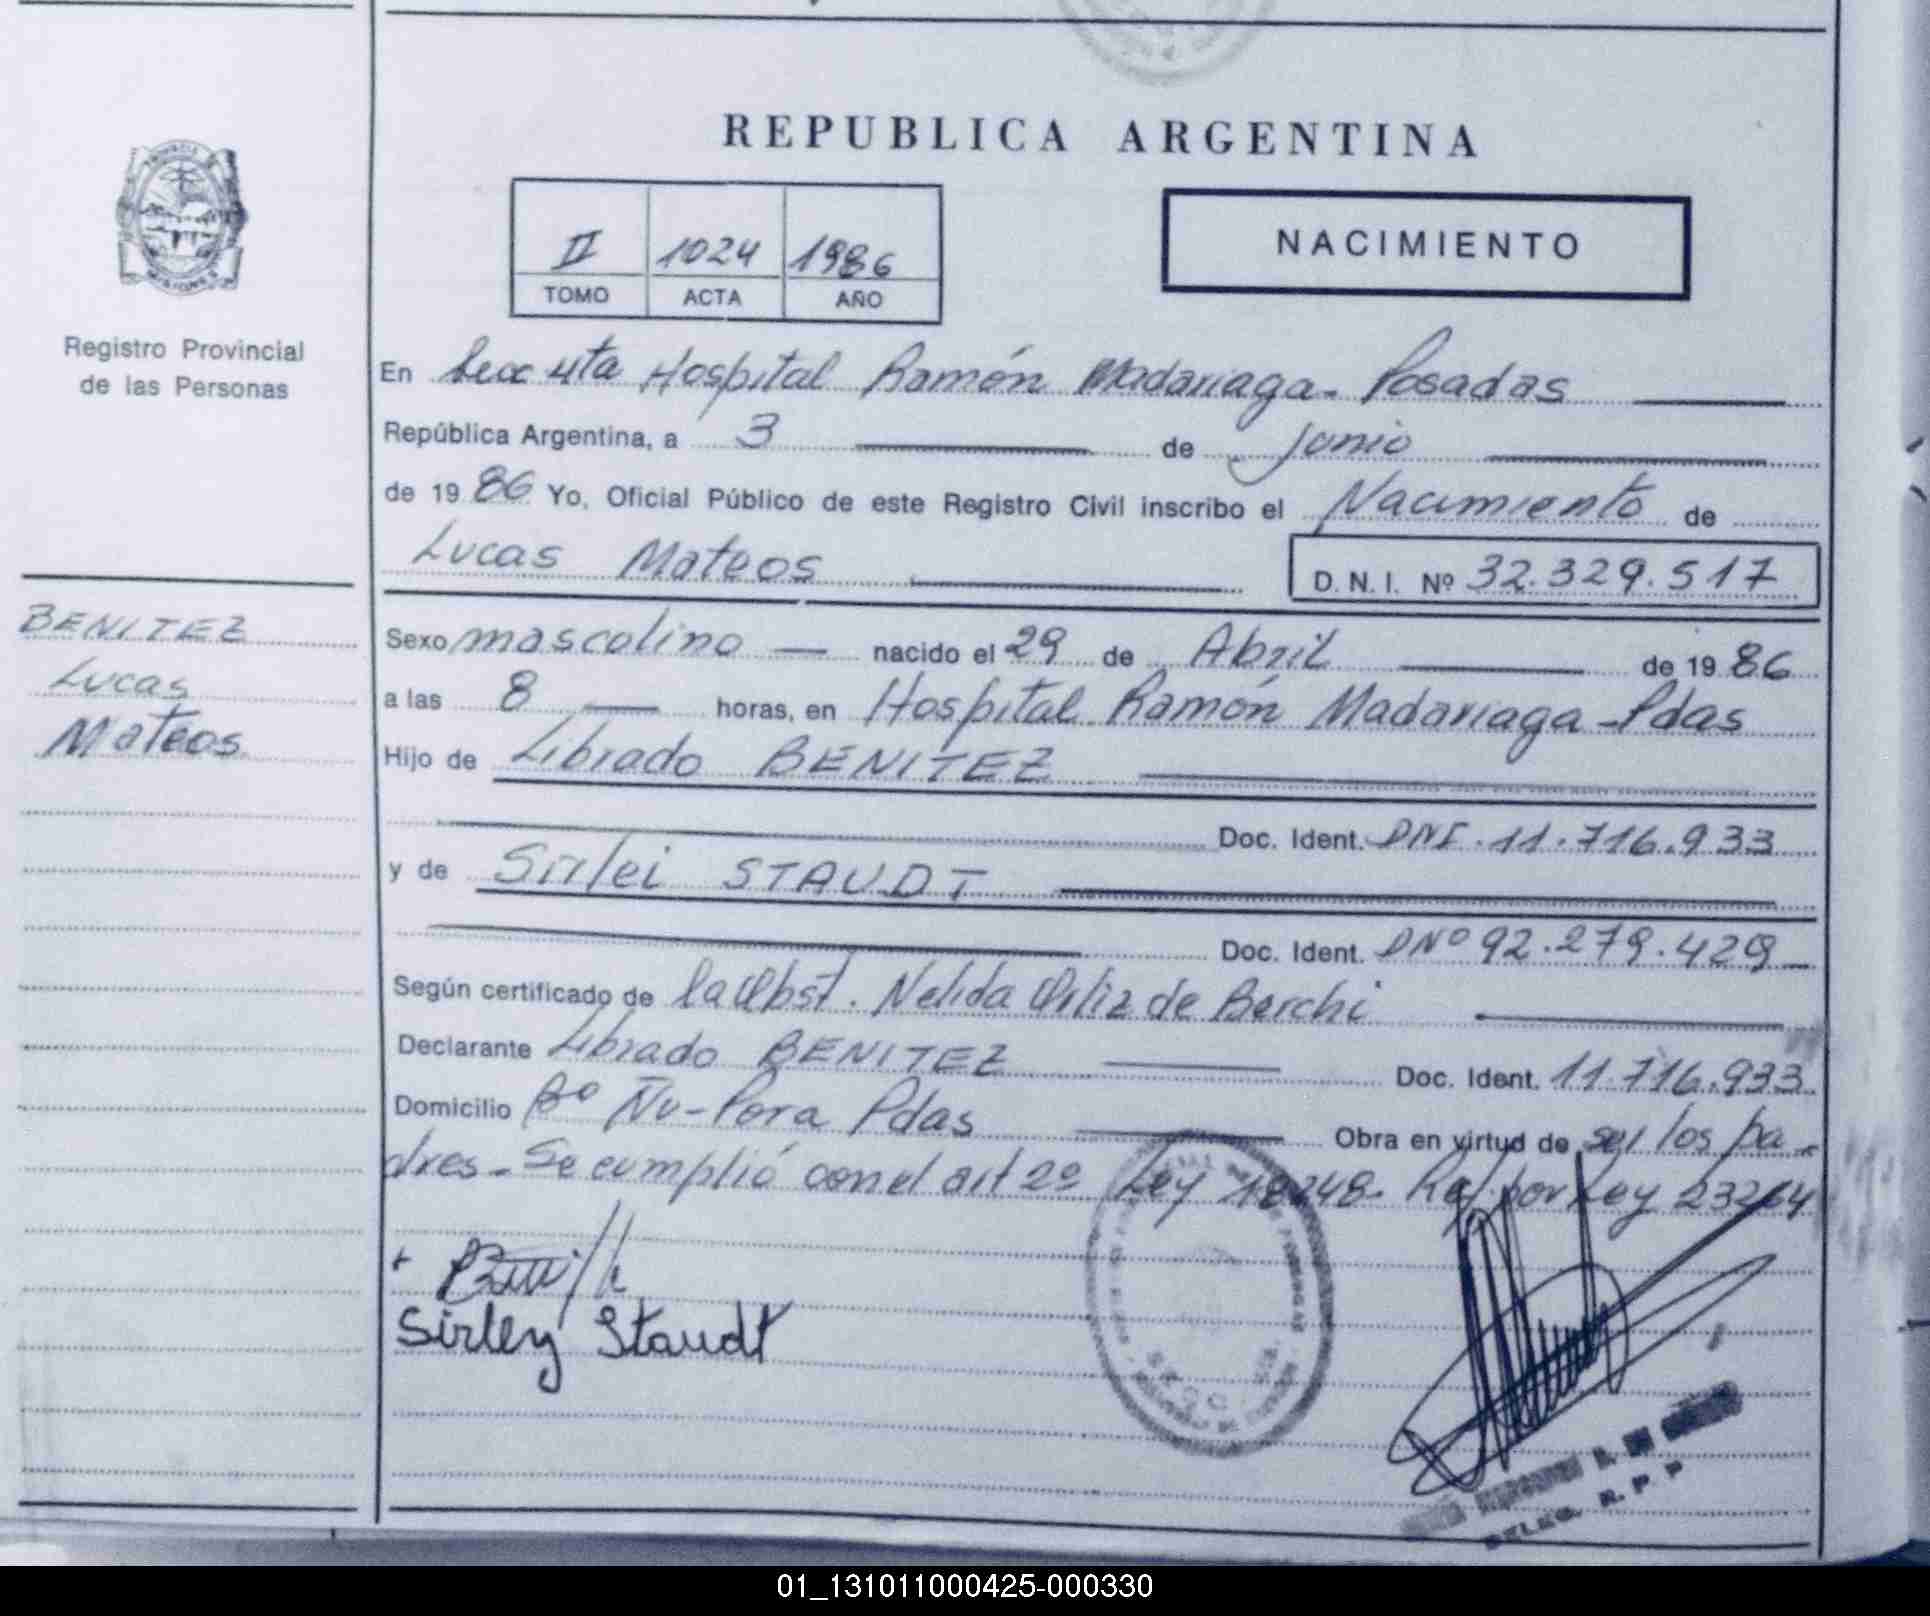 REPUBLICA ARGENTINA
II 1024 1986
TOMO ACTA AÑO
NACIMIENTO
Registro Provincial
de las Personas
BENITEZ
Lucas
Mateos
En Secc 4ta Hospital Ramón Madariaga - Posadas
República Argentina, a 3 de junio
de 19 86 Yo, Oficial Público de este Registro Civil inscribo el Nacimiento de
Lucas Mateos D. N. I. Nº 32.329.517
Sexo masculino nacido el 29 de Abril de 19 86
a las 8 horas, en Hospital Ramón Madariaga - Pdas
Hijo de Librado BENITEZ
Doc. Ident. DNI. 11.716.933
y de Sirlei STAUDT
Doc. Ident. DNº 92.279.429
Según certificado de la Obst. Nelida Ortiz de Berchi
Declarante Librado BENITEZ Doc. Ident. 11.716.933
Domicilio Bº Ñu-Pora Pdas Obra en virtud de ser los pa-
dres - Se cumplió con el art 2º Ley 18248. Ref. por Ley 23264
Sirley Staudt
DELEG. R. P. P
01_131011000425-000330